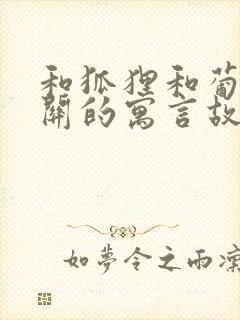 和狐狸和葡
關的寓言故
如夢令之雨濛